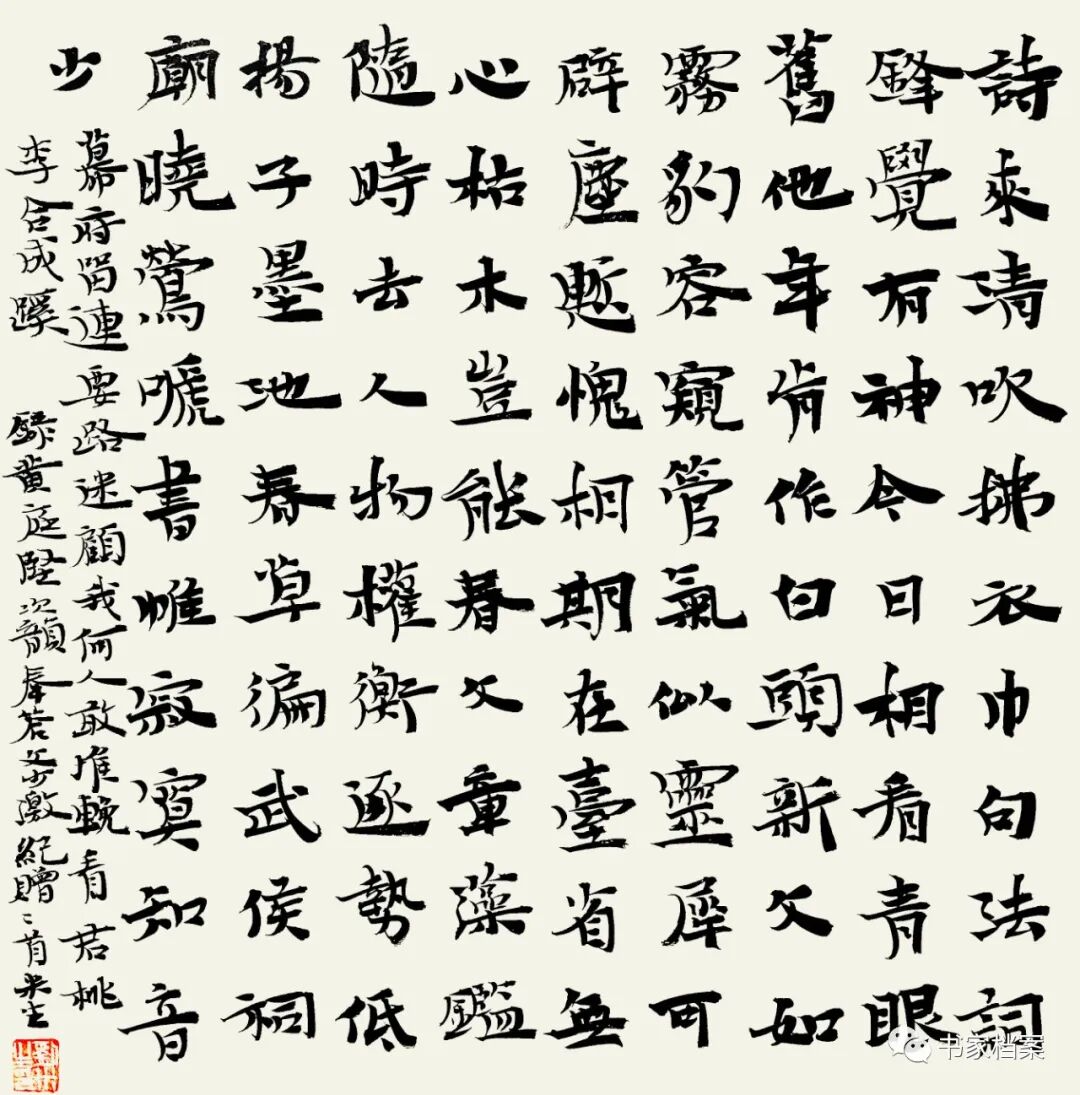 詩來清吹拂衣巾句法詞
鋒覺有神今日相看青眼
舊他年肯作白頭新文如
霧豹容窺管氣似靈犀可
辟塵慙愧相期在臺省無
心枯木豈能春文章藻鑑
隨時去人物權衡逐勢低
楊子墨池春草徧武侯祠
廟曉鶯嗁書帷寂寞知音
少
幕府留連要路迷顧我何人敢推輓看君桃
李合成蹊 錄黃庭堅次韻奉答文少激紀贈二首
书家档案